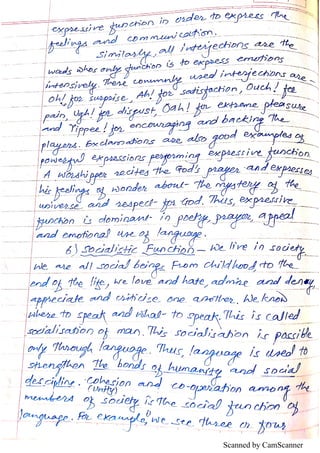 expressive function in order to express the
feelings and communication.
Similarly, all interjections are the
words whos only function is to express emotions
intensively. There commonly used interjections are-
Oh! for surprise, Ah! for satisfaction, Ouch! for
pain, Ugh! for disgust, Oah! for extrame pleasure
and Yippee! for encouraging and backing the
players. Exclamations are also good examples of
powerful expressions performing expressive function
A worshipper recites the God's prayer and expresses
his feelings of wonder about the mystery of the
universe and respect for God. Thus, expressive
function is dominant in poetry, prayer, appeal
and emotional use of language.
b) Socialistic Function - We live in society.
We are all social beings. From childhood to the
end of the life, we love and hate, admire and deny,
appreciate and criticise one another. We know
where to speak and what to speak. This is called
socialisation of man. This socialisation is possible
only through language. Thus, language is used to
strengthen the bonds of humanity and social
descipline. Cohesion and co-operation among the
(unity)
members of society is the social function of
language. For example, we see three or four
Scanned by CamScanner